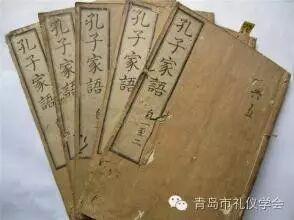 孔子家語
孔子家語
孔子家語
孔子家語
孔子家語
青岛市礼仪学会